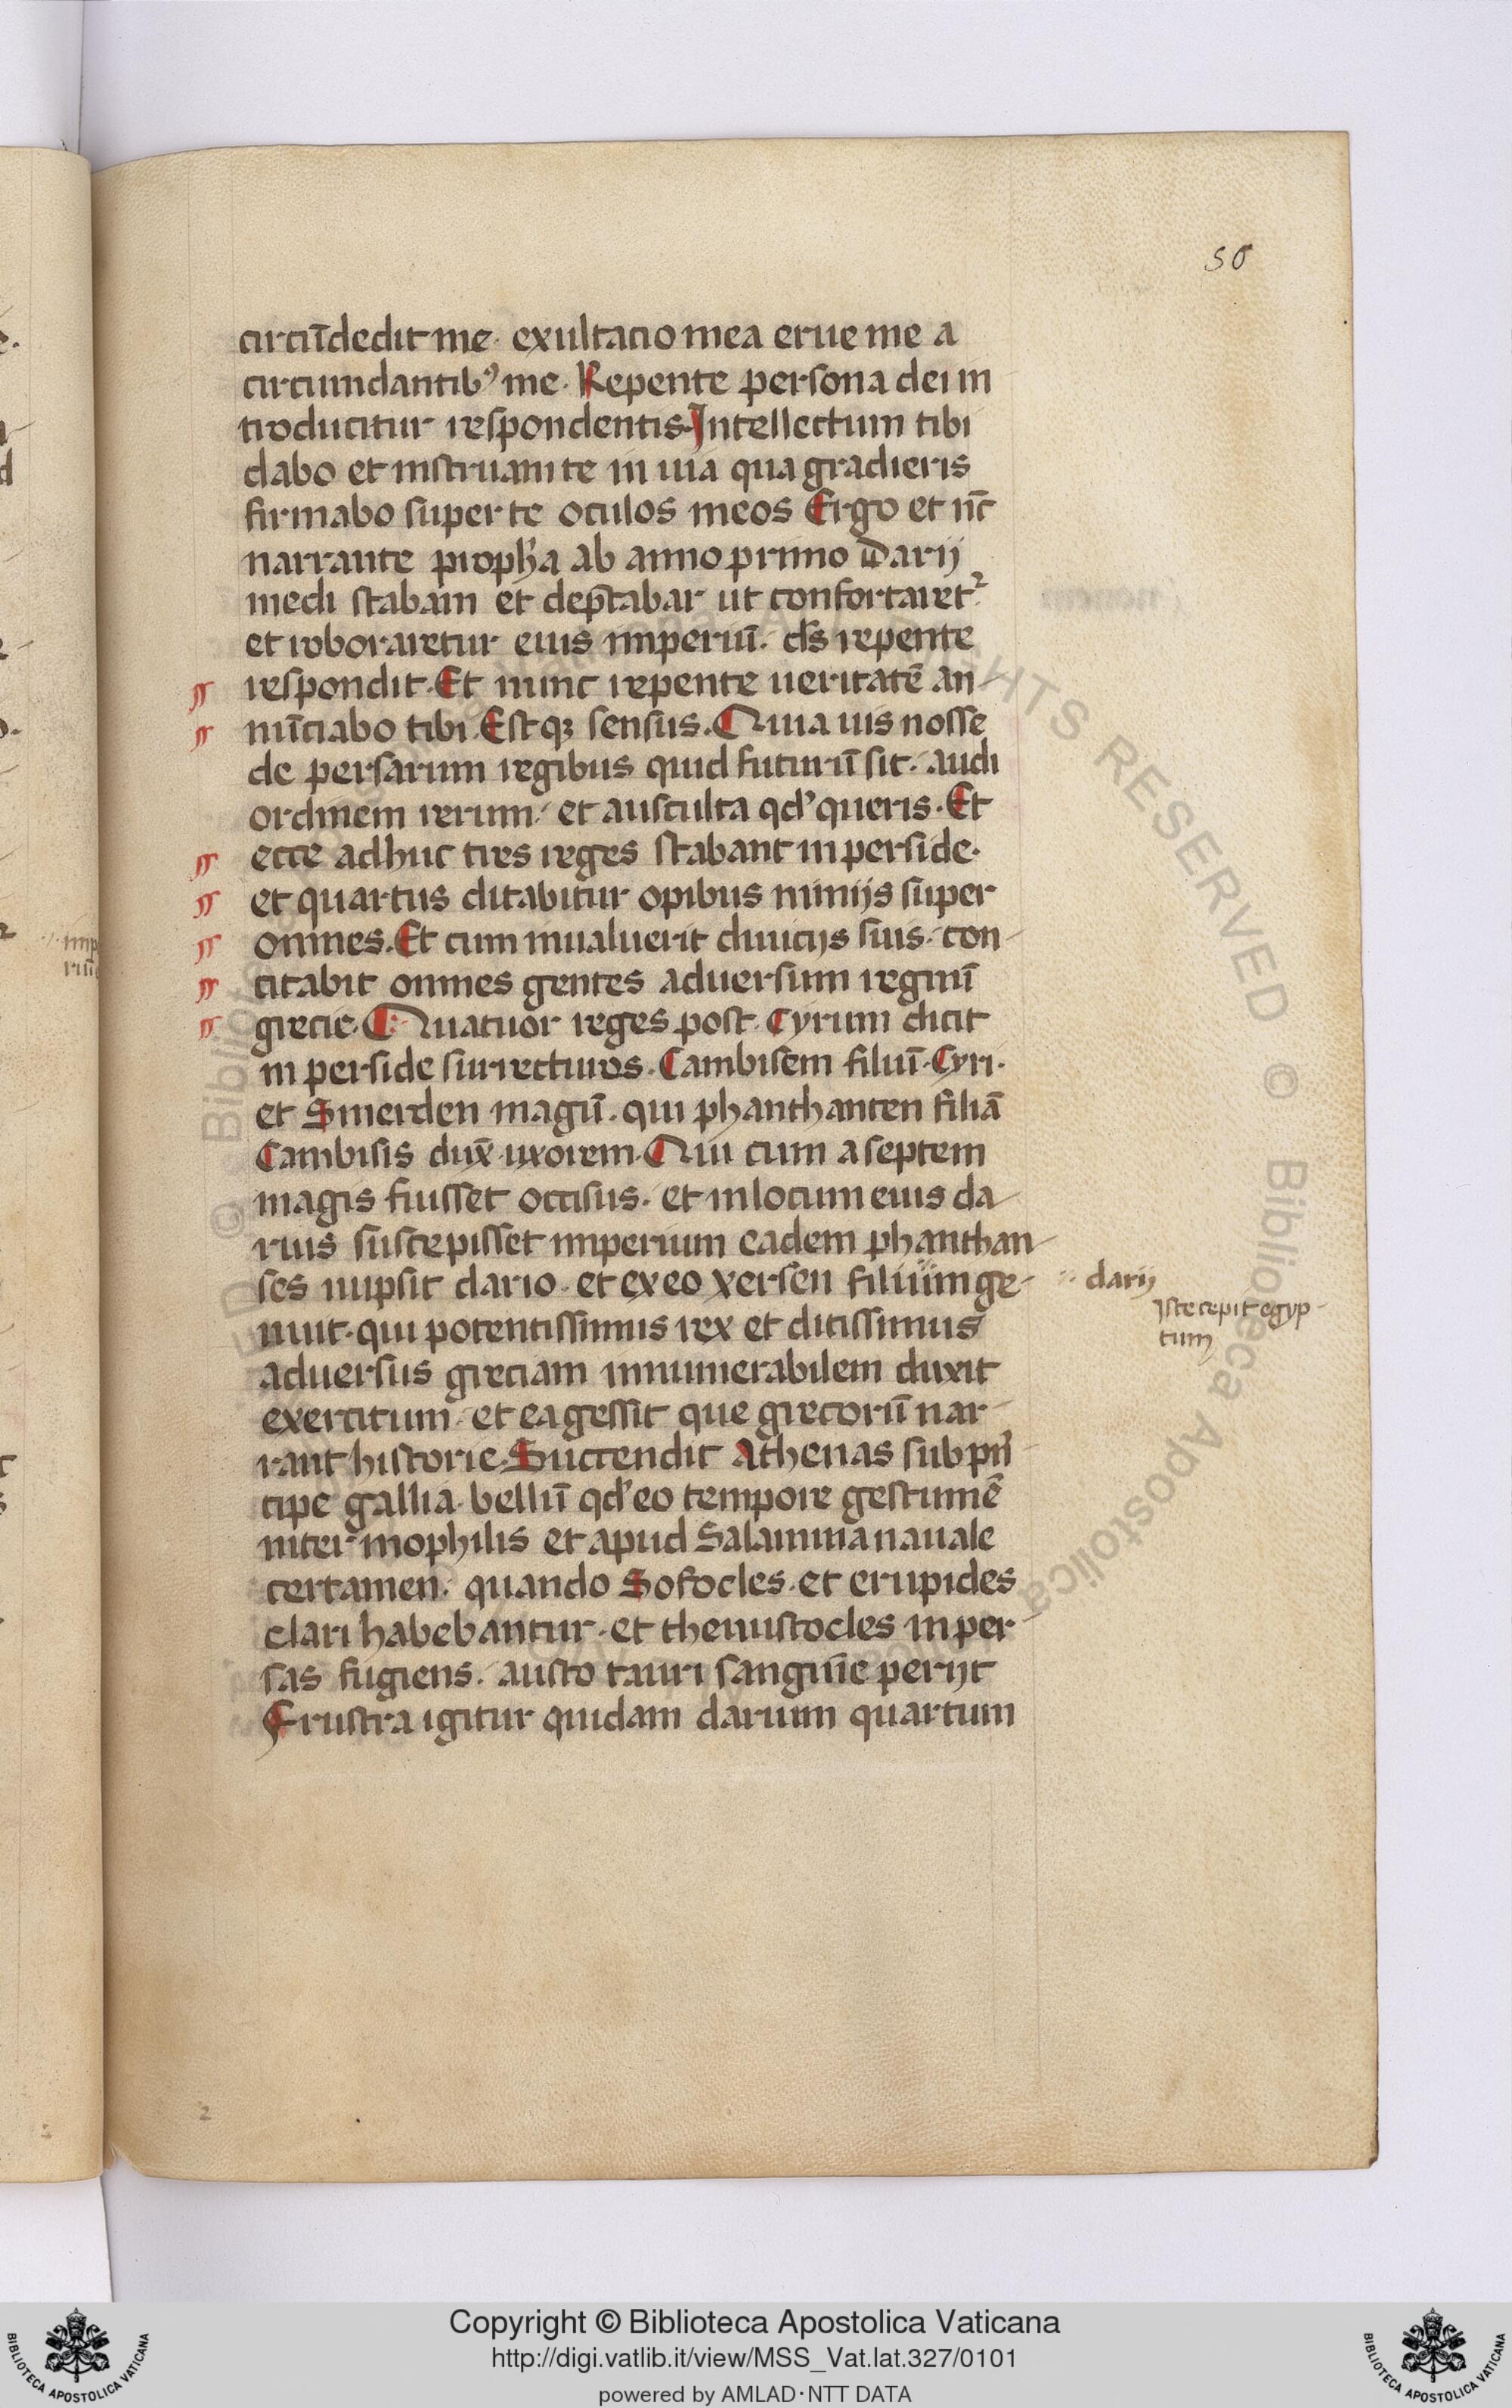 50
circūdedit me. exultacio mea erue me a
circumdantibꝰ me. Repente persona dei in
troducitur respondentis. Intellectum tibi
dabo et instruam te in uia qua gradieris
firmabo super te oculos meos Ergo et nc̄
narrante proph̄a ab anno primo Darij
medi stabam et dep̄tabar ut confortaret᷑
et roboraretur eius imperiū. ds̄ repente
respondit. Et nunc repente ueritatē an-
nūciabo tibi. Estqꝫ sensus. Quia uis nosse
de persarum regibus quid futurū sit. audi
ordinem rerum. et ausculta qd' queris. Et
ecce adhuc tres reges stabant in perside.
et quartus ditabitur opibus nimijs super
omnes. Et cum inualuerit diuicijs suis. con-
citabit omnes gentes aduersum regnū
grecie. Quatuor reges post Cyrum dicit
in perside surrecturos. Cambisem filiū Cyri.
et Smerden magū. qui phanthanten filiā
Cambisis dux̄ uxorem. Qui cum a septem
magis fuisset occisus. et in locum eius da-
rius suscepisset imperium eadem phanthan-
ses nupsit dario. et ex eo xersen filium ge-
nuit. qui potentissimus rex et ditissimus
aduersus greciam innumerabilem duxit
exercitum. et ea gessit que grecorū nar-
rant historie. Succendit Athenas sub prī-
cipe gallia. bellū qd' eo tempore gestum ē
niter mophilis et apud Salamina nauale
certamen. quando Sofocles. et erupides
clari habebantur. et themistocles in per-
sas fugiens. austo tauri sanguīe perijt
Frustra igitur quidam darium quartum
darij
Iste cepit egyp-
tum
2
© Biblioteca Apostolica Vaticana
Copyright © Biblioteca Apostolica Vaticana
http://digi.vatlib.it/view/MSS_Vat.lat.327/0101
powered by AMLAD·NTT DATA
BIBLIOTECA APOSTOLICA VATICANA
BIBLIOTECA APOSTOLICA VATICANA